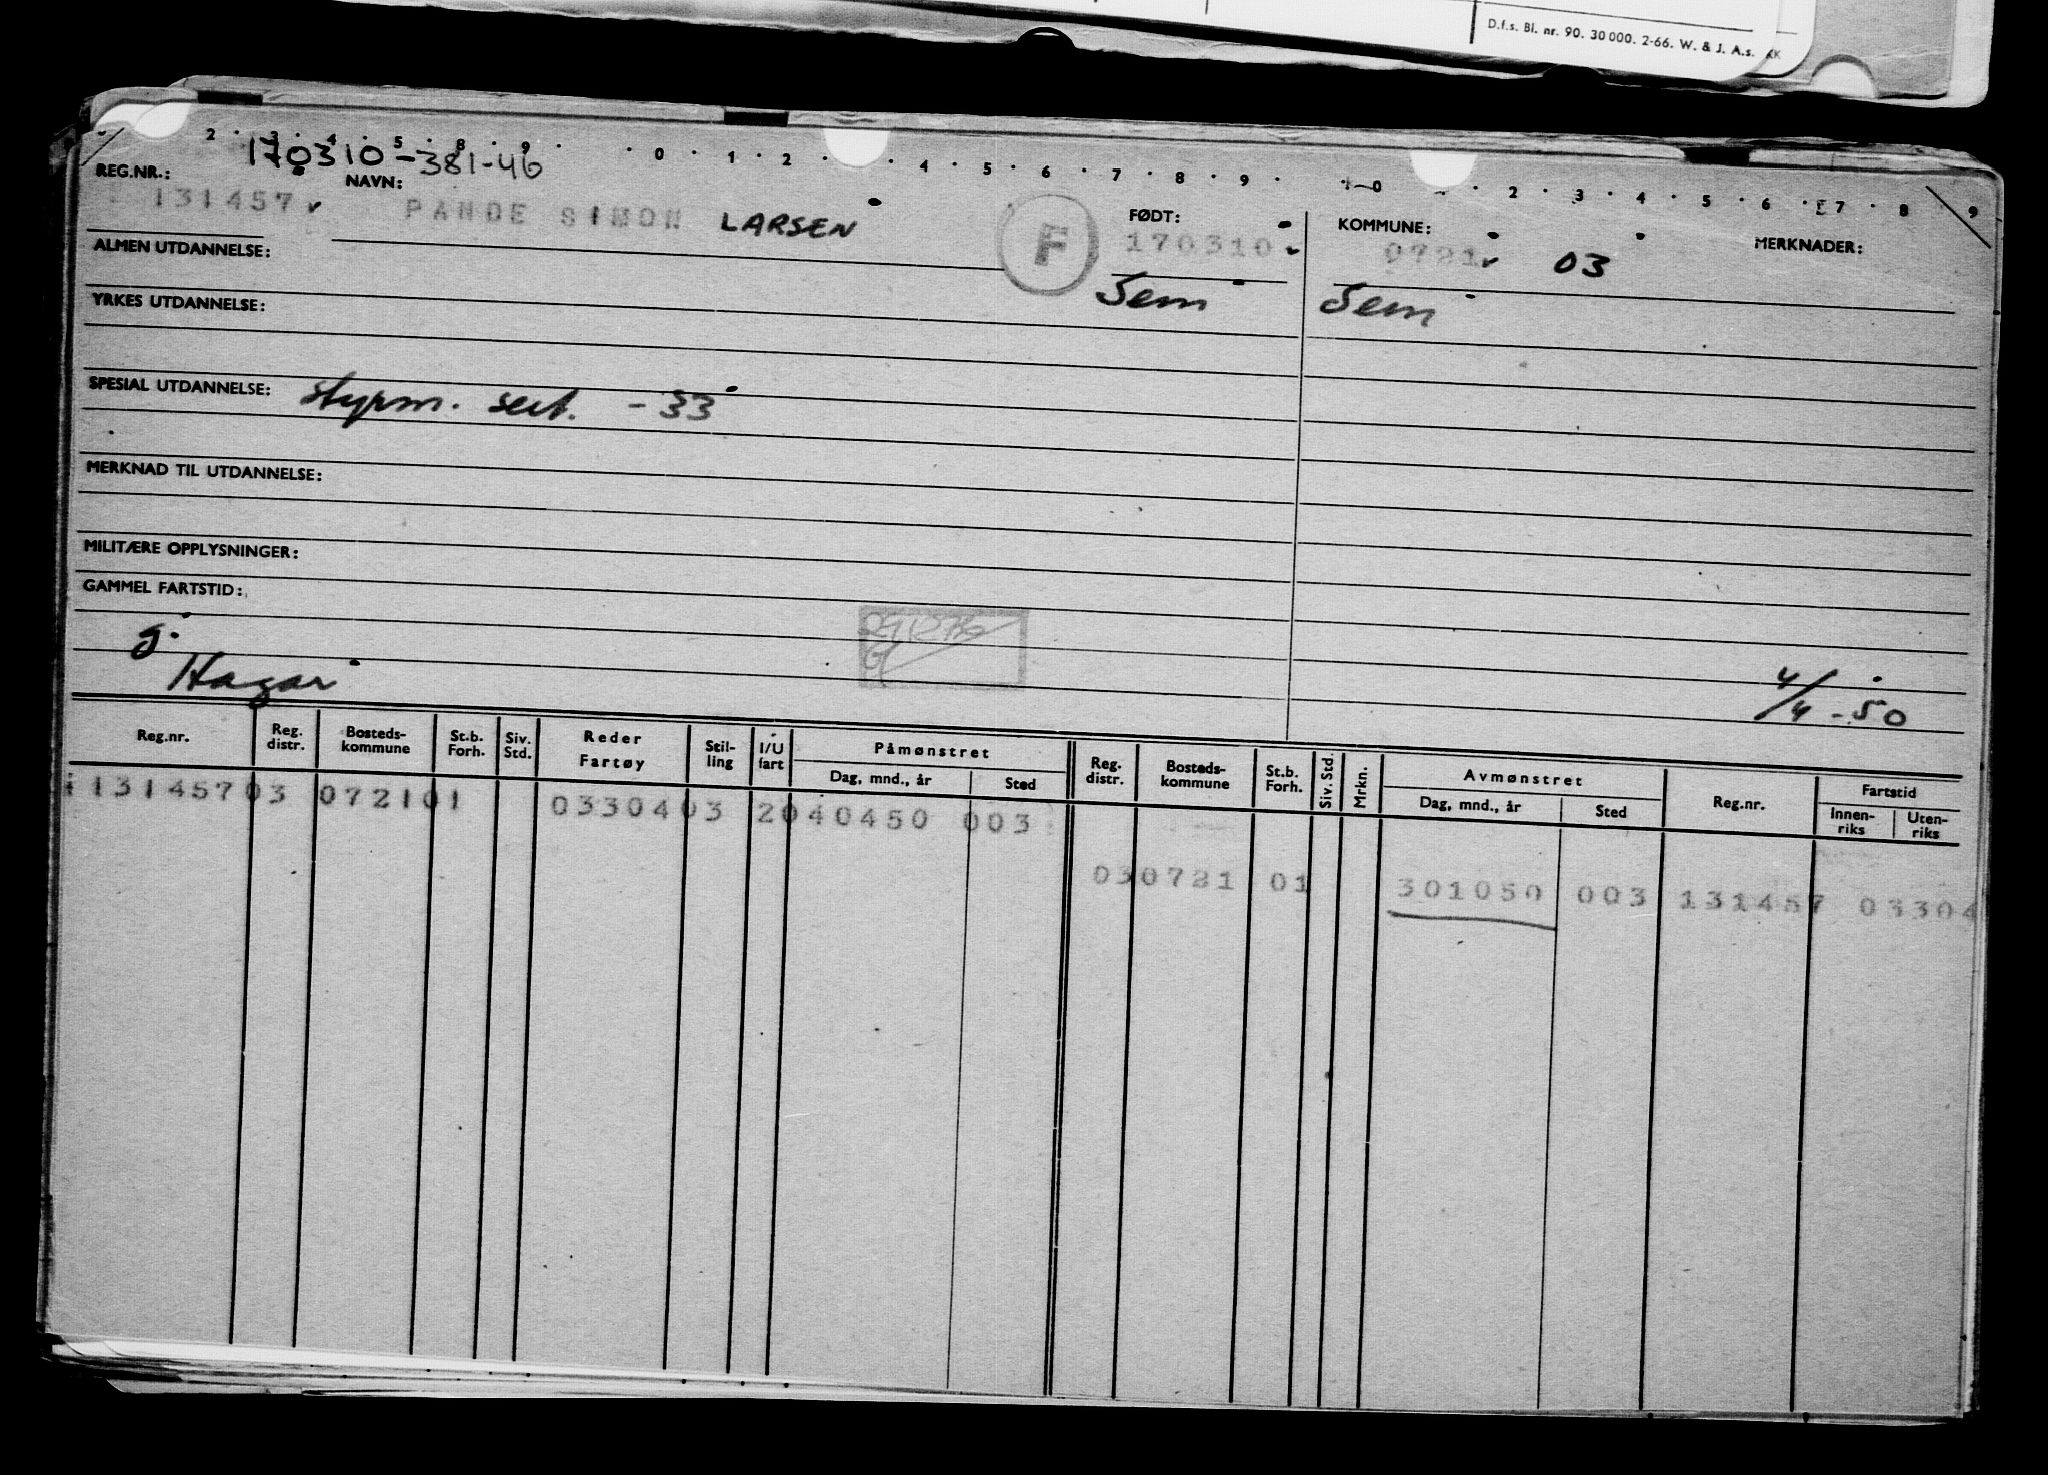 D.f.s. Bl. nr. 90. 30 000. 2-66. W. & J. A.s.
2 · 3 · 4 · 5 · 8 · 9 · · 0 · 1 · 2 · · 4 · 5 · 6 · 7 · 8 · 9 · · 0 · 2 · 3 · 4 · 5 · 6 · 7 · 8 · 9
170310-381-46
REG.NR.: NAVN: FØDT: KOMMUNE: MERKNADER:
131457 PANDE SIMON LARSEN F 170310 0721 03
ALMEN UTDANNELSE: Sem Sem
YRKES UTDANNELSE:
SPESIAL UTDANNELSE: styrm. sert. - 33
MERKNAD TIL UTDANNELSE:
MILITÆRE OPPLYSNINGER:
GAMMEL FARTSTID:
g.
Hagar 4/4 - 50
Reg.nr. Reg. distr. Bosteds-kommune St.b. Forh. Siv. Std. Reder Fartøy Stil-ling I/U fart Påmønstret Dag, mnd., år Sted Reg. distr. Bosteds-kommune St.b. Forh. Siv. Std. Mrkn. Avmønstret Dag, mnd., år Sted Reg.nr. Fartstid Innen-riks Uten-riks
131457 03 0721 01 03304 03 2 040450 003
03 0721 01 301050 003 131457 03304